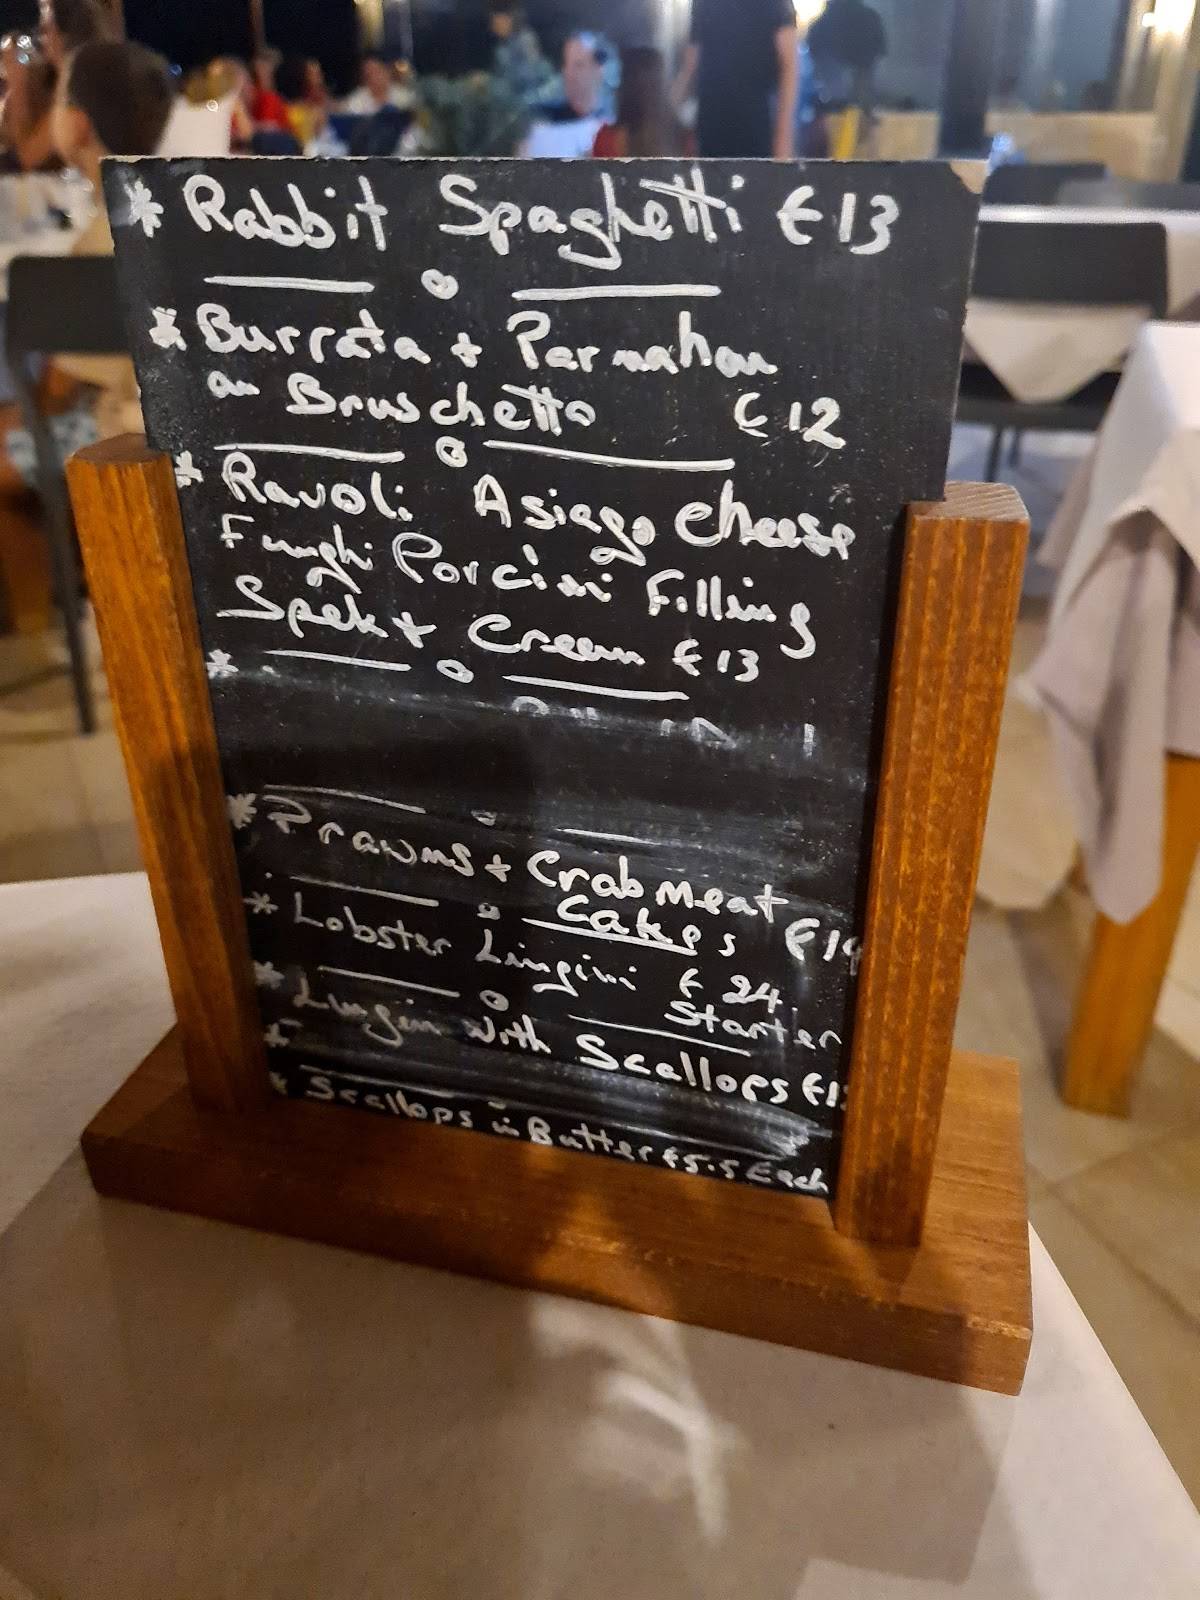 * Rabbit Spaghetti €13
* Burrata + Parmaham
on Bruschetta €12
* Ravoli Asiago cheese
Funghi Porcini Filling
Spek + Cream €13
*
* Prawns + Crab meat
Cakes
* Lobster Lingini € 24
Starter
* Lingin with Scallops
*
* Scallops in Butter €5.5 Each